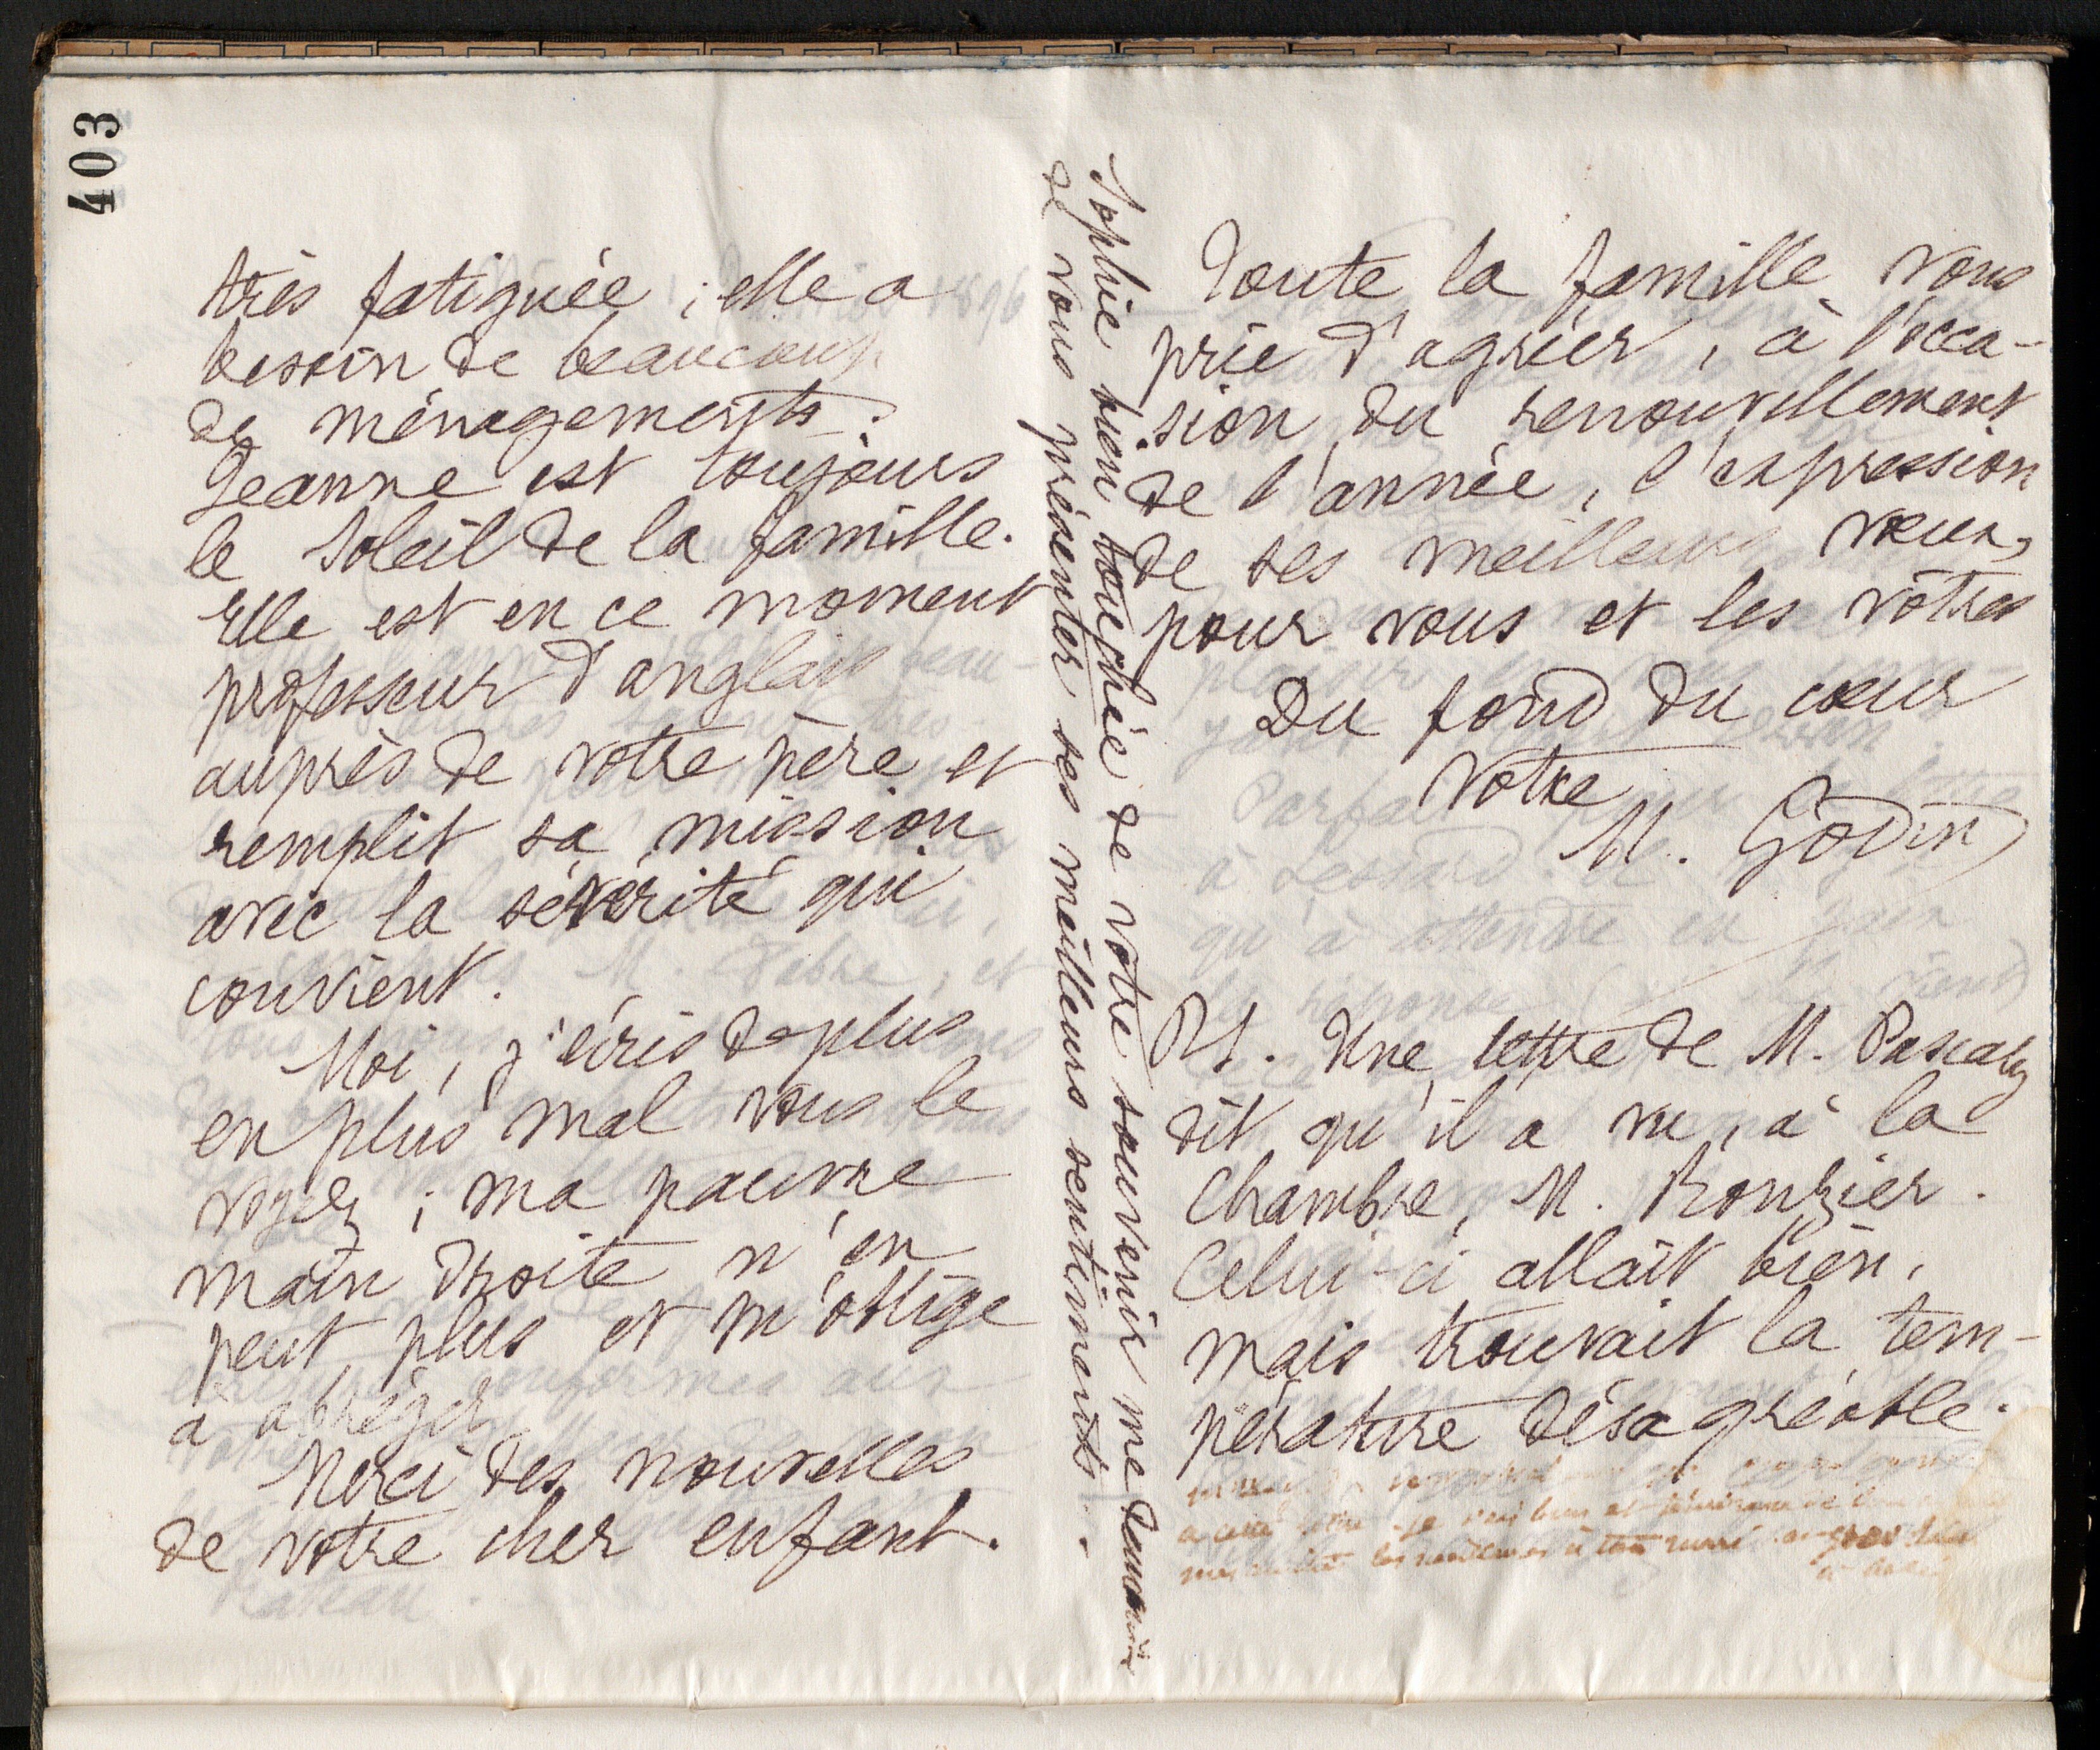 403
très fatiguée ; elle a
besoin de beaucoup
de ménagements.
Jeanne est toujours
le soleil de la famille.
Elle est en ce moment
professeur d'anglais
auprès de votre père et
remplit sa mission
avec la sévérité qui
convient.
Moi, j'écris de plus
en plus mal vous le
voyez ; ma pauvre
main droite n'en
peut plus et m'oblige
à abréger
Merci des nouvelles
de votre cher enfant.
Toute la famille vous
prie d'agréer, à l'occa-
sion du renouvellement
de l'année, l'expression
de ses meilleurs vœux,
pour vous et les vôtres
Du fond du cœur
Votre
M. Godin
PS. Une lettre de M. Pascaly
dit qu'il a vu, à la
Chambre, M. Ronzier.
Celui-ci allait bien,
mais trouvait la tem-
pérature désagréable.
a cette lettre
Sophie bien touchée de votre souvenir me demande
de vous présenter ses meilleurs sentiments.